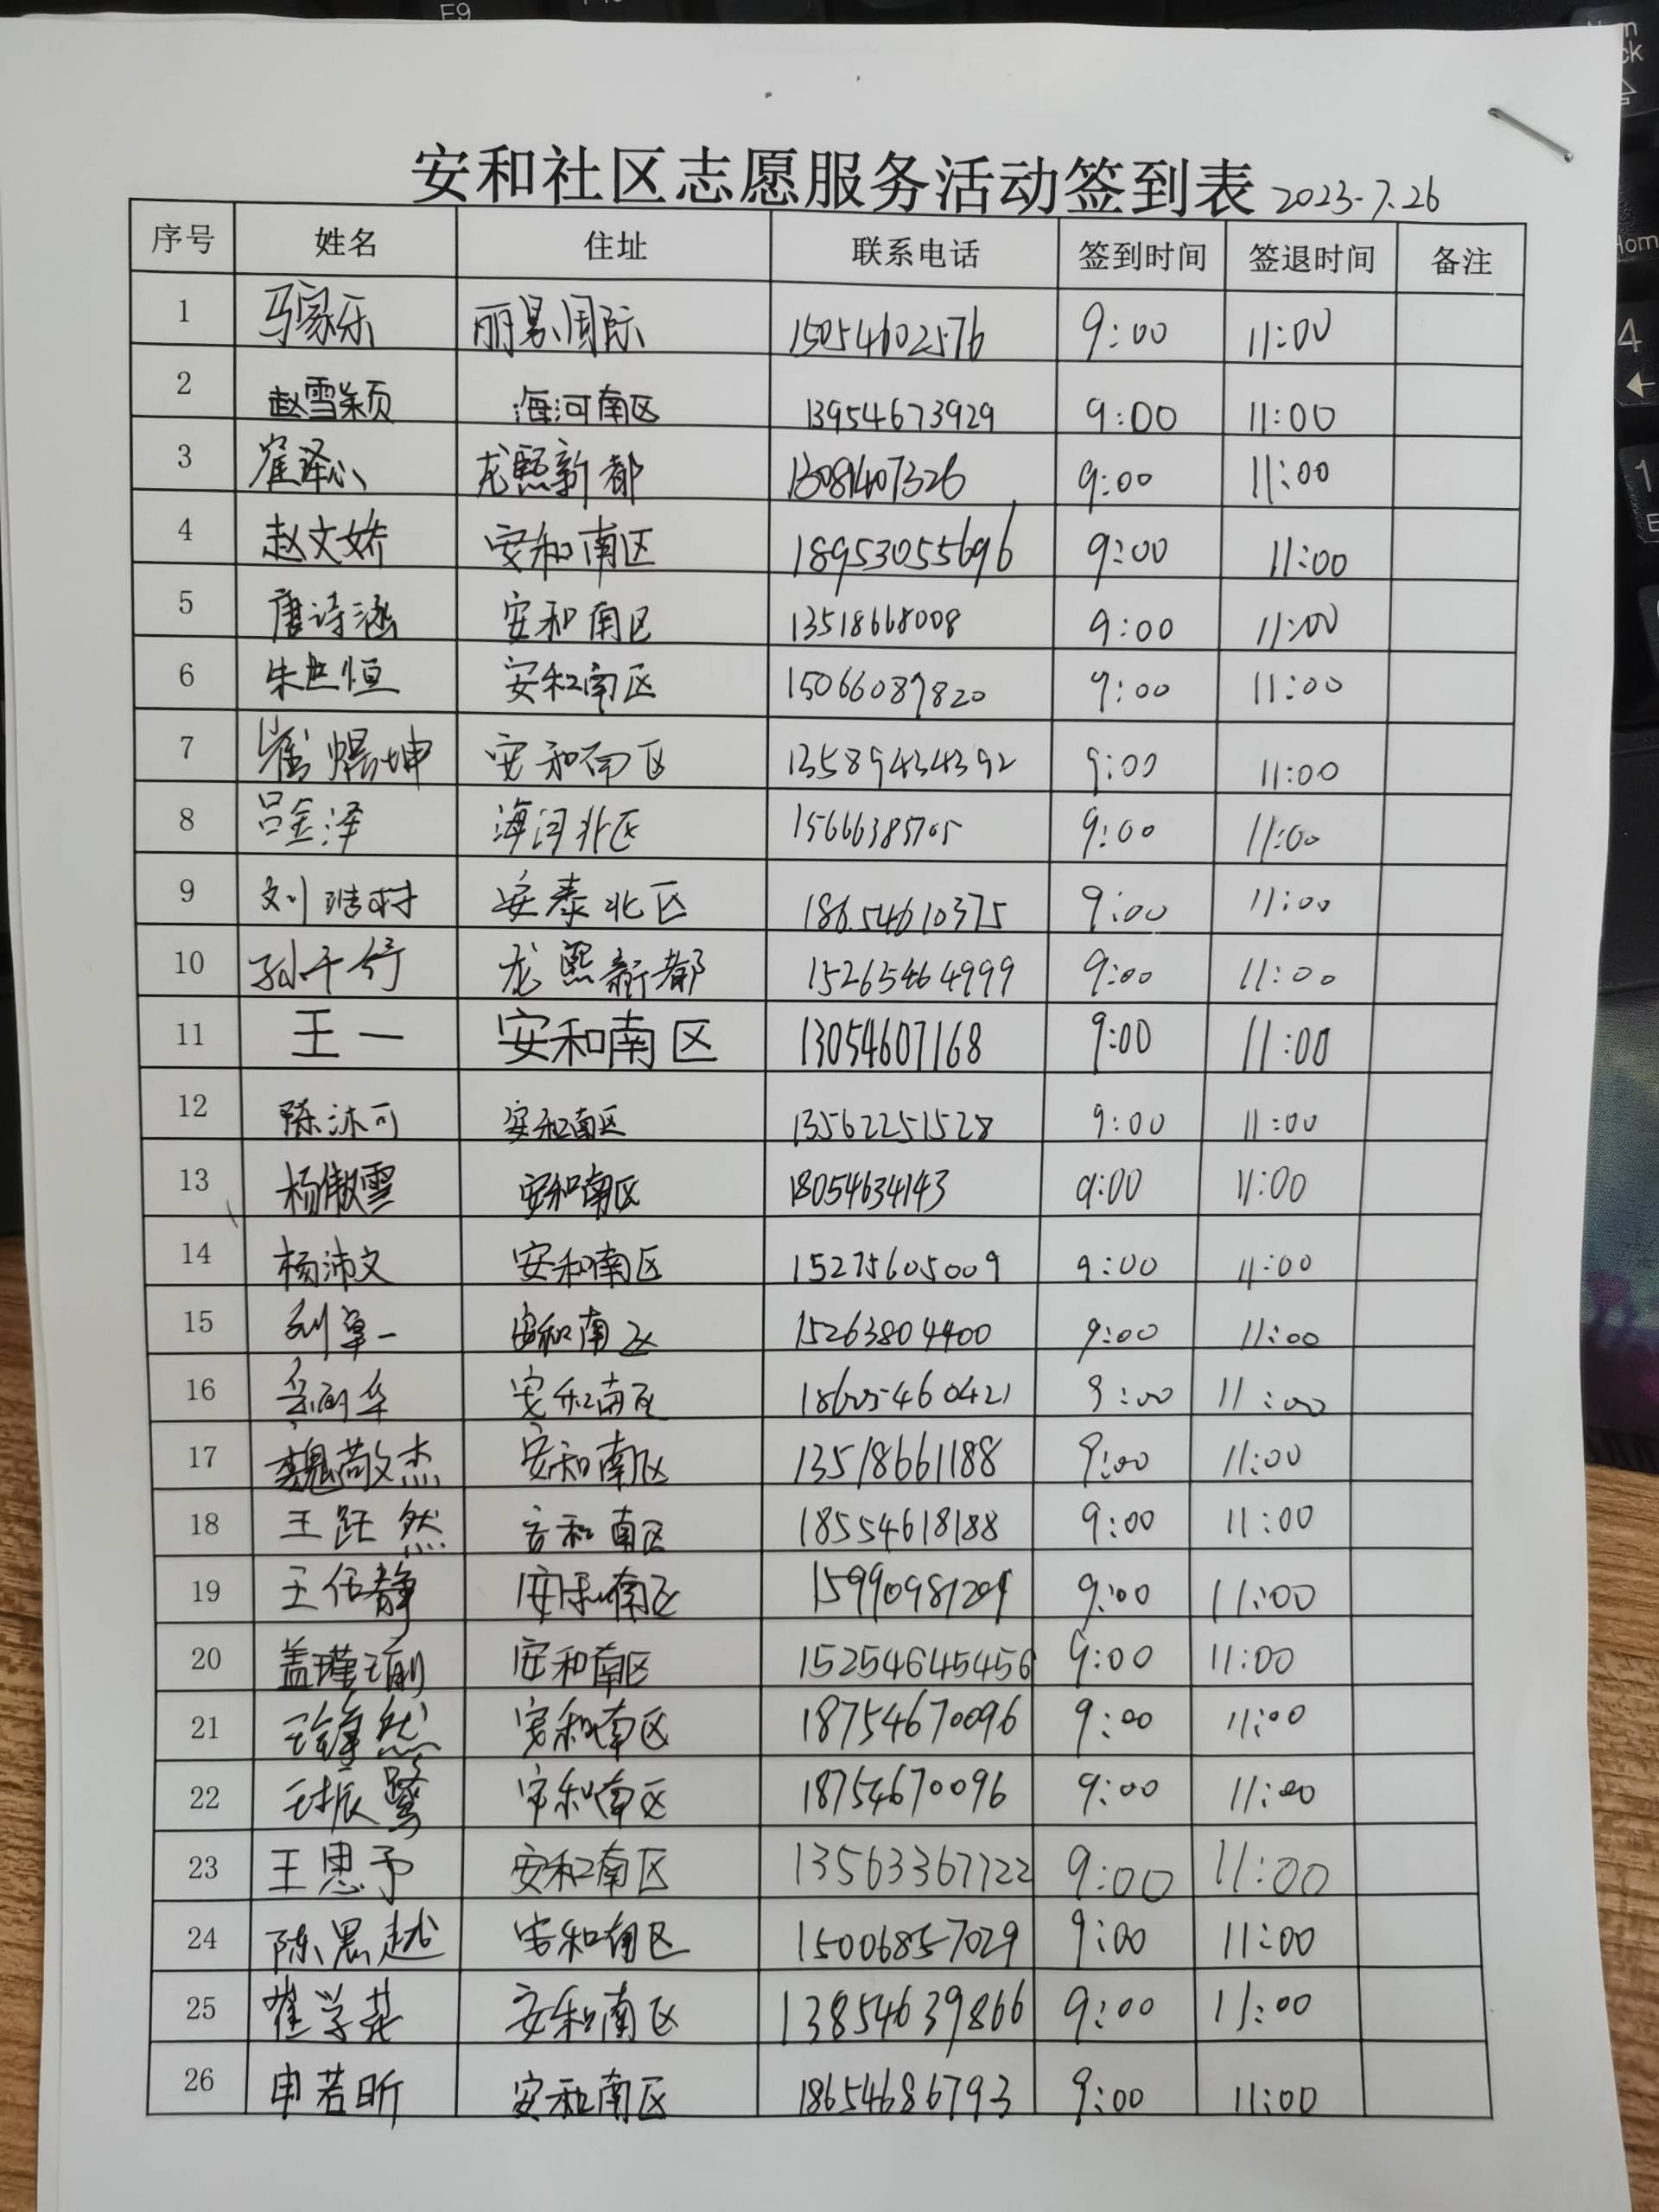 F9
安和社区志愿服务活动签到表 2023.7.26
序号 姓名 住址 联系电话 签到时间 签退时间 备注
1 马家乐 丽景国际 15054602576 9:00 11:00
2 赵雪颖 海河南区 13954673929 9:00 11:00
3 崔译心 龙熙新都 9:00 11:00
4 赵文娇 安和南区 18953055696 9:00 11:00
5 唐诗涵 安和南区 13518668008 9:00 11:00
6 朱世恒 安和南区 15066089820 9:00 11:00
7 崔焜坤 安和南区 13589434392 9:00 11:00
8 吕金泽 海河北区 15666385705 9:00 11:00
9 刘 安泰北区 18654610375 9:00 11:00
10 孙千舒 龙熙新都 15265464999 9:00 11:00
11 王一 安和南区 13054607168 9:00 11:00
12 陈沐可 安和南区 13562251528 9:00 11:00
13 杨傲雪 安和南区 18054634143 9:00 11:00
14 杨沛文 安和南区 15275605009 9:00 11:00
15 刘卓一 安和南区 15263804400 9:00 11:00
16 安和南区 18605460421 9:00 11:00
17 魏敬杰 安和南区 13518661188 9:00 11:00
18 王跃然 安和南区 18554618188 9:00 11:00
19 王伍静 安和南区 15990981209 9:00 11:00
20 盖瑾瑜 安和南区 15254645456 9:00 11:00
21 安和南区 18754670096 9:00 11:00
22 王振鹭 安和南区 18754670096 9:00 11:00
23 王思予 安和南区 13563367722 9:00 11:00
24 陈思越 安和南区 15006857029 9:00 11:00
25 崔学花 安和南区 13854639866 9:00 11:00
26 申若昕 安和南区 18654686793 9:00 11:00